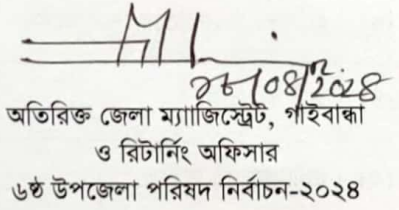 ২৮/০৪/২০২৪
অতিরিক্ত জেলা ম্যাজিস্ট্রেট, গাইবান্ধা
ও রিটার্নিং অফিসার
৬ষ্ঠ উপজেলা পরিষদ নির্বাচন-২০২৪